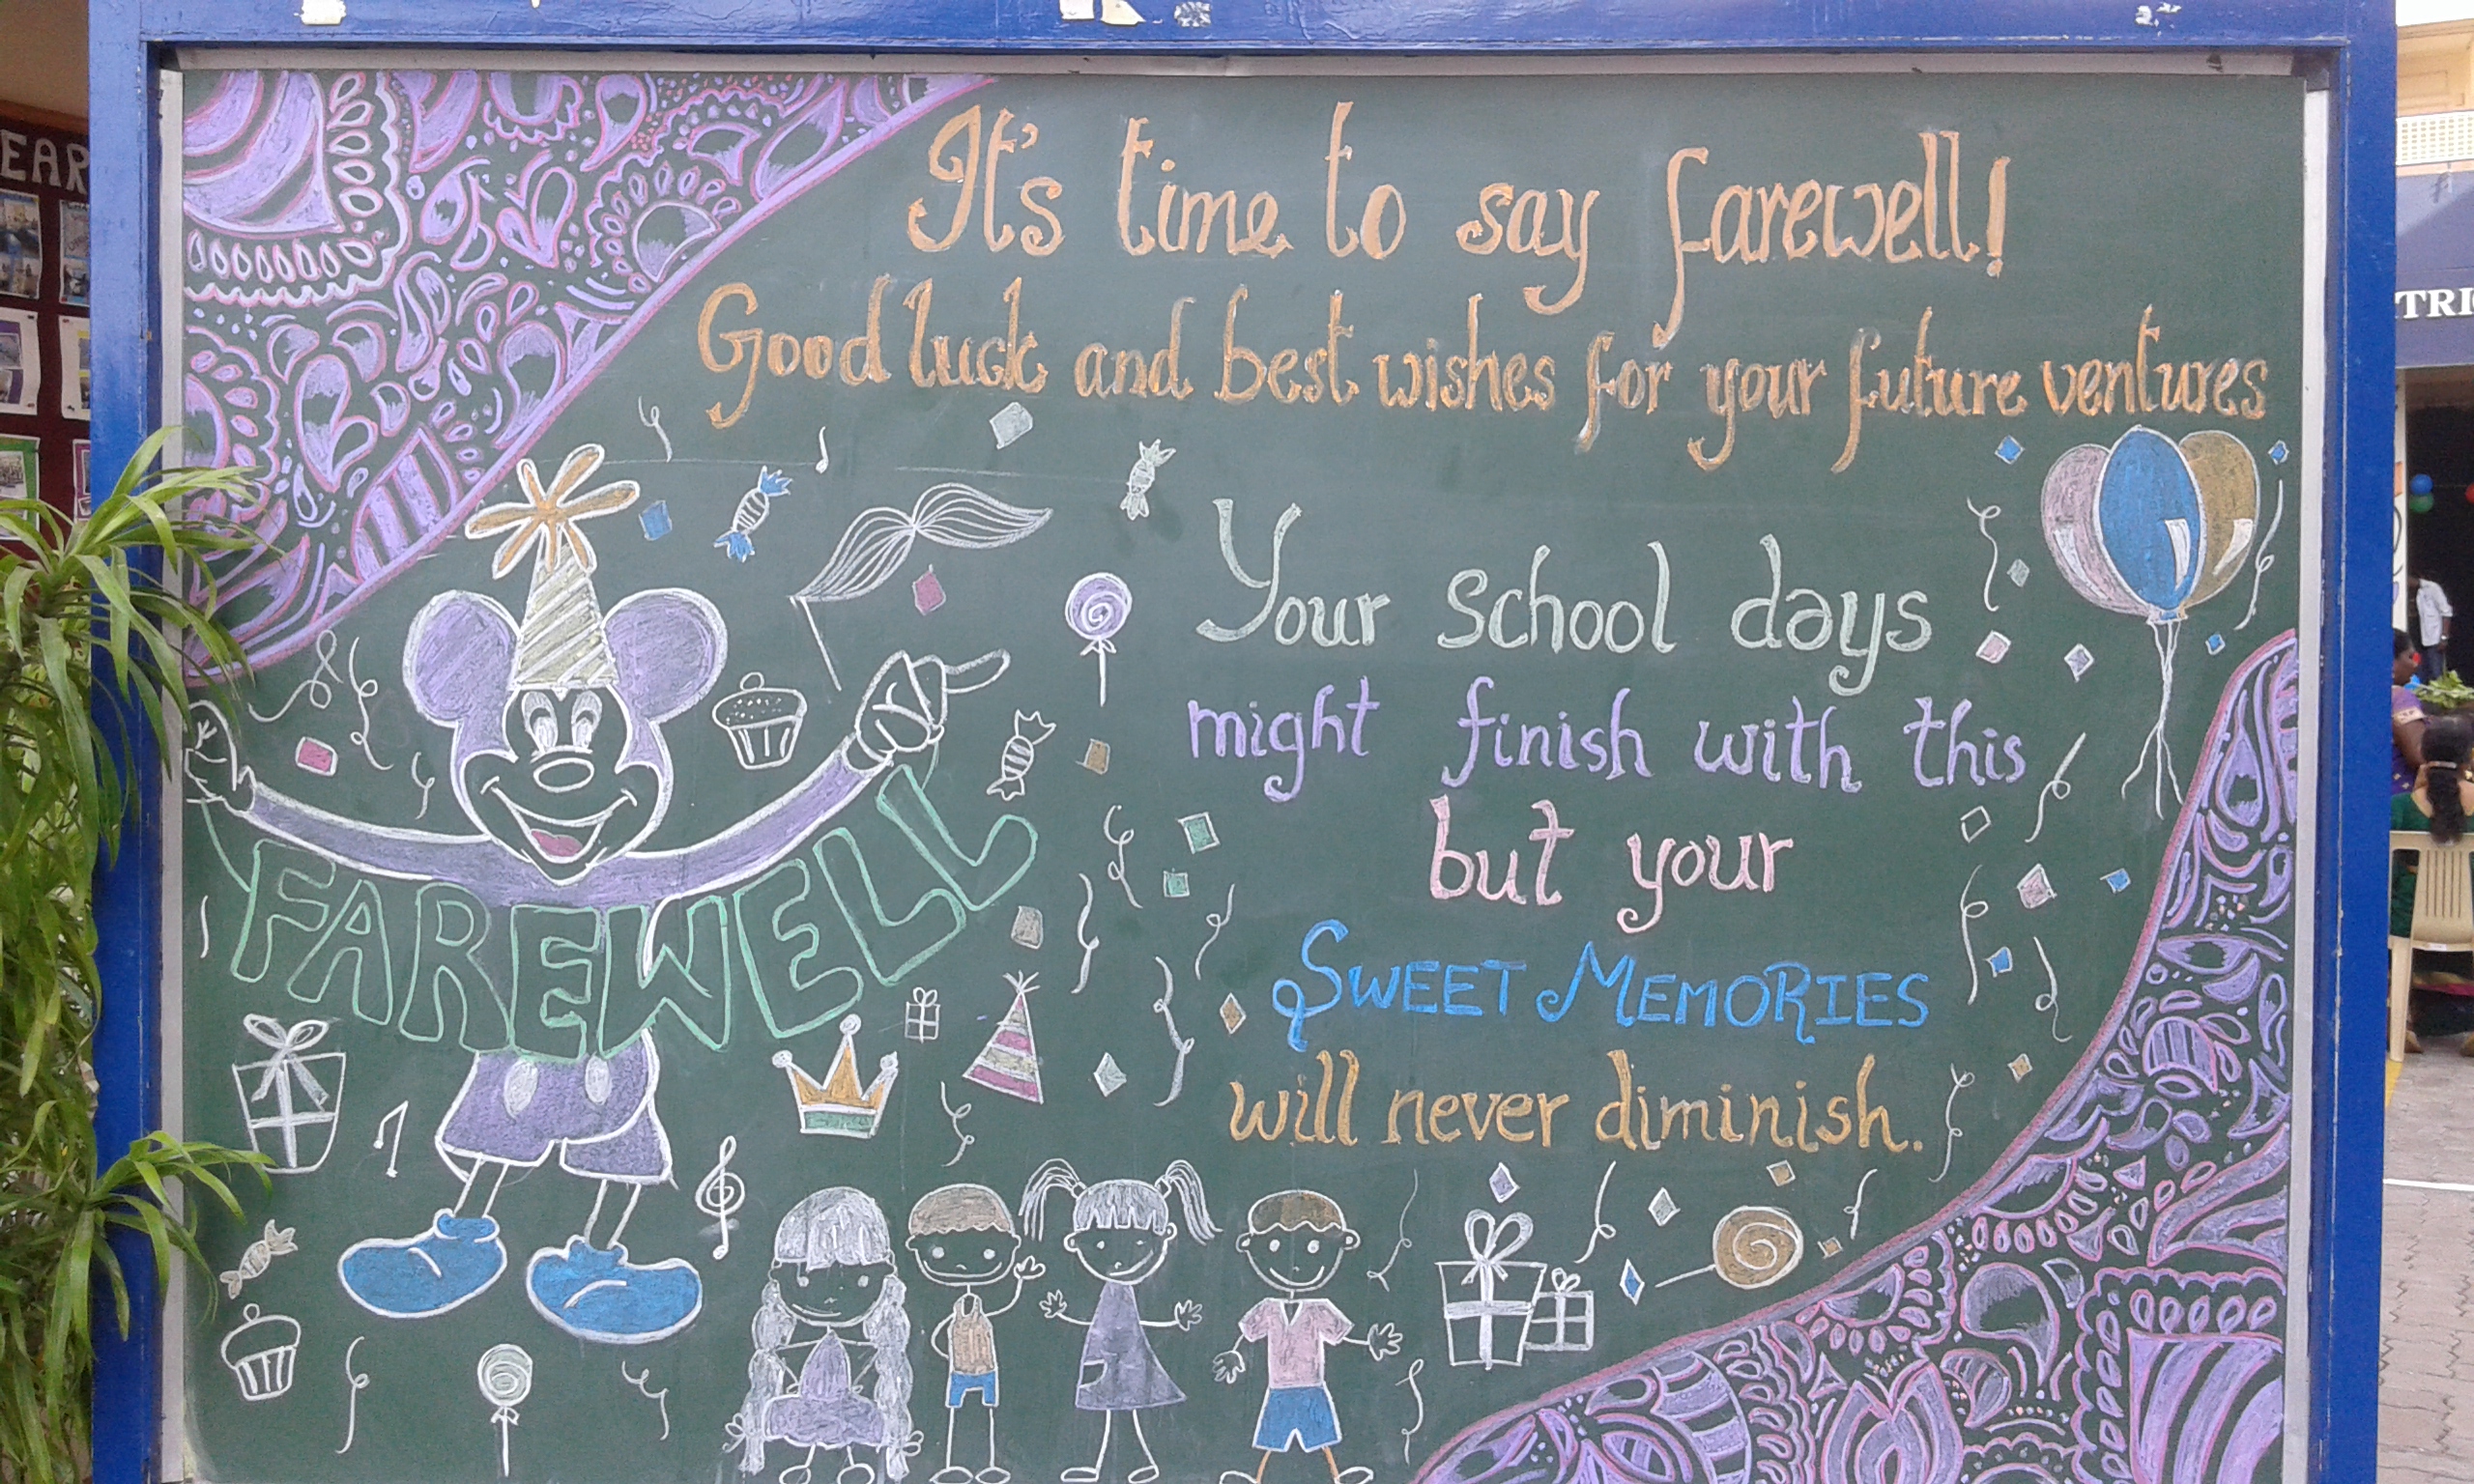 It's time to say farewell!
Good luck and best wishes for your future ventures
Your school days
might finish with this
but your
SWEET MEMORIES
will never diminish.
FAREWELL
EAR
TRI